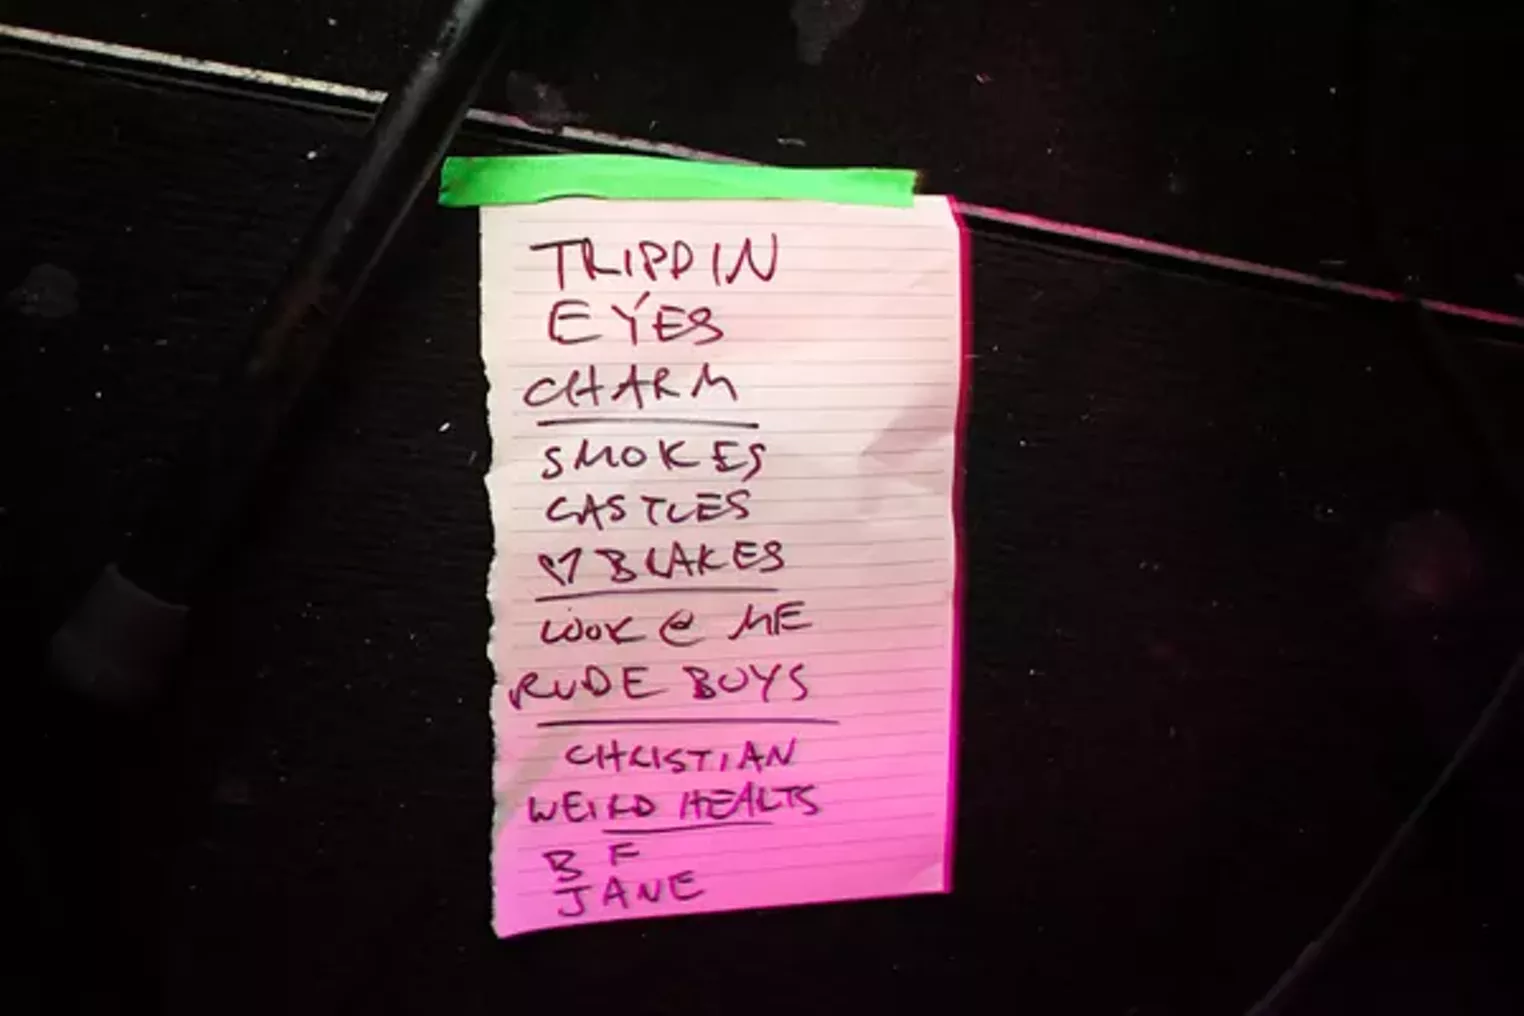 TRIPPIN
EYES
CHARM
SMOKES
CASTLES
♡ BLAKES
LOOK @ ME
RUDE BOYS
CHRISTIAN
WEIRD HEARTS
B F
JANE